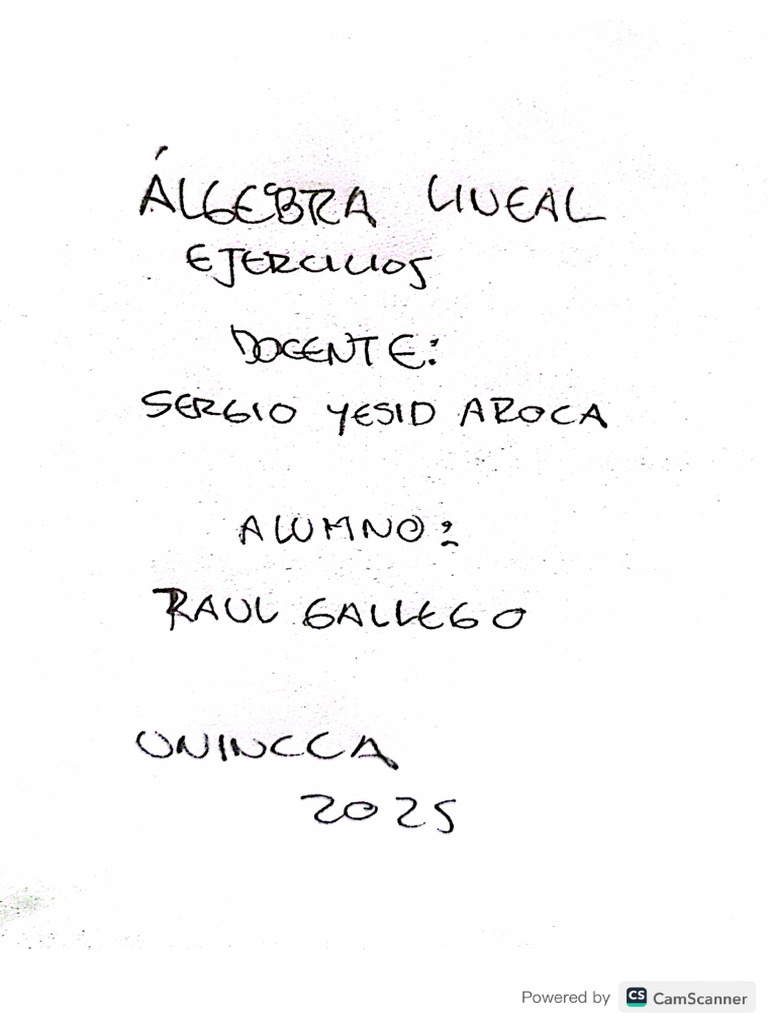 ÁLGEBRA LINEAL
EJERCICIOS
DOCENTE:
SERGIO YESID AROCA
ALUMNO:
RAUL GALLEGO
UNINCCA
2025
Powered by CS CamScanner